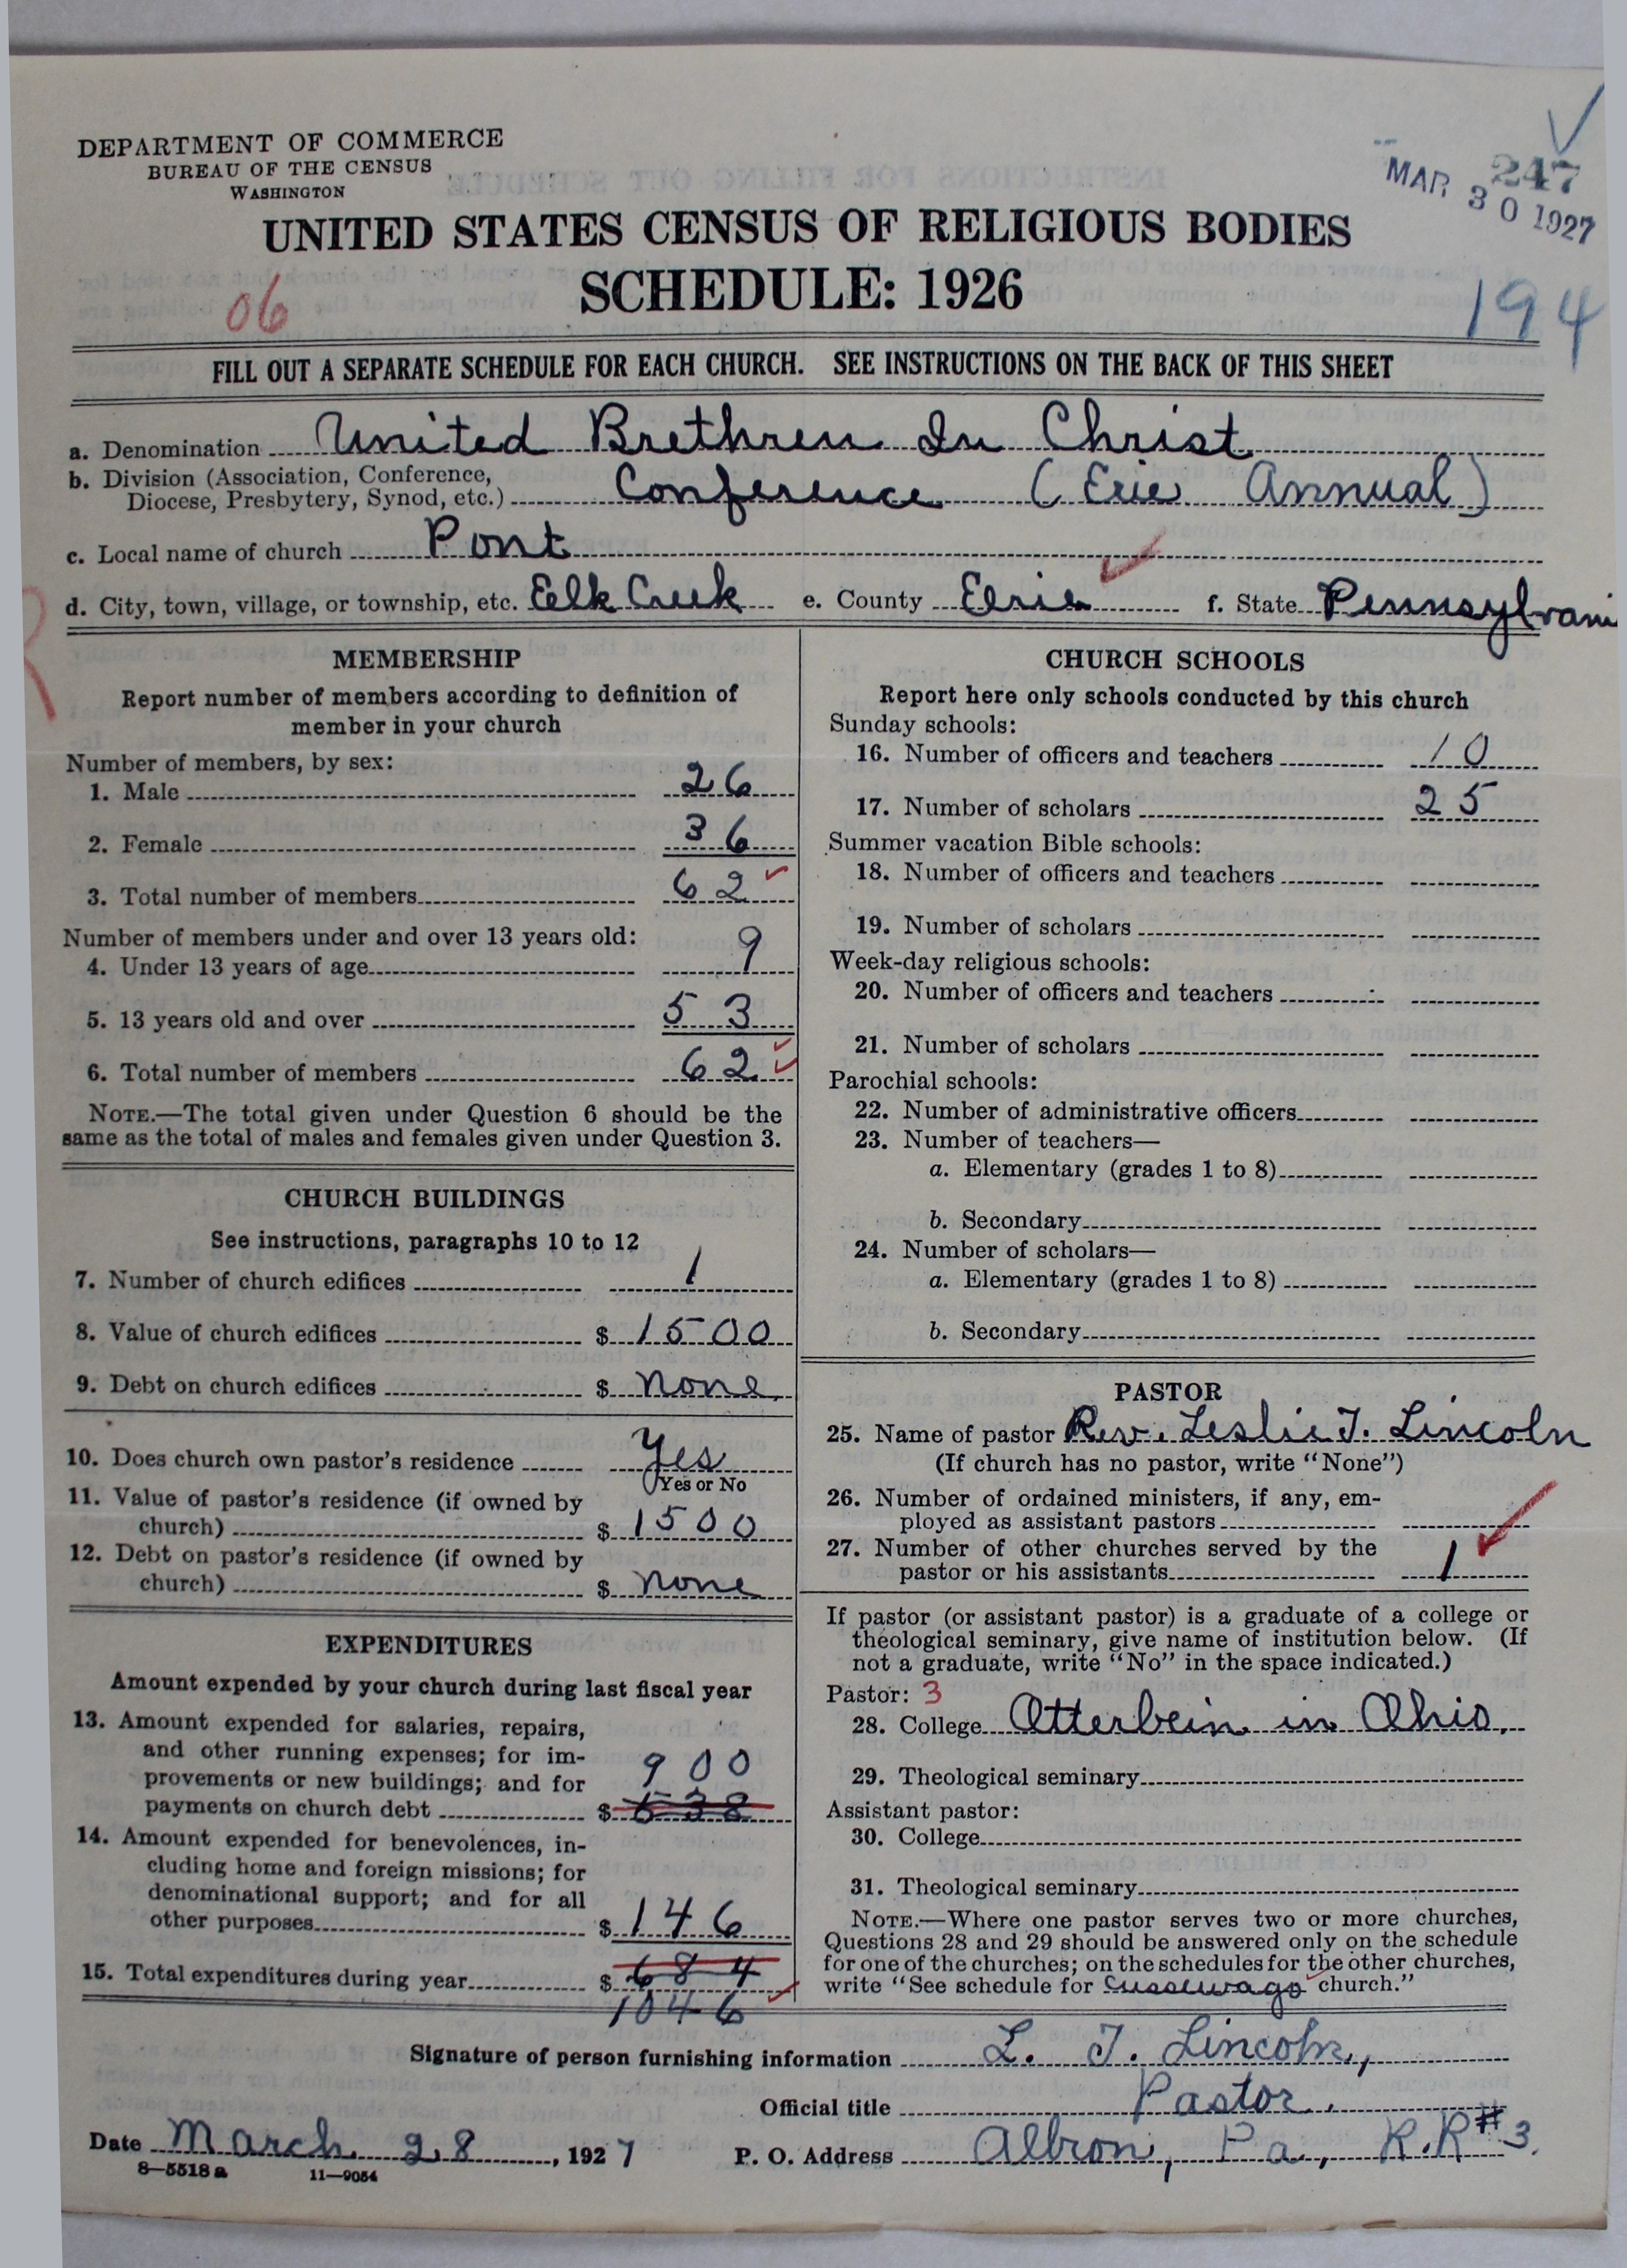 DEPARTMENT OF COMMERCE
BUREAU OF THE CENSUS
WASHINGTON
247
MAR 30 1927
UNITED STATES CENSUS OF RELIGIOUS BODIES
SCHEDULE: 1926
06
194
FILL OUT A SEPARATE SCHEDULE FOR EACH CHURCH. SEE INSTRUCTIONS ON THE BACK OF THIS SHEET
a. Denomination United Brethren In Christ
b. Division (Association, Conference,
Diocese, Presbytery, Synod, etc.) Conference (Erie Annual)
c. Local name of church Pont
d. City, town, village, or township, etc. Eelk Creek e. County Elrie f. State Pennsylvani
MEMBERSHIP
Report number of members according to definition of
member in your church
Number of members, by sex:
1. Male 26
2. Female 36
3. Total number of members 62
Number of members under and over 13 years old:
4. Under 13 years of age 9
5. 13 years old and over 53
6. Total number of members 62
NOTE.—The total given under Question 6 should be the
same as the total of males and females given under Question 3.
CHURCH BUILDINGS
See instructions, paragraphs 10 to 12
7. Number of church edifices 1
8. Value of church edifices $ 1500
9. Debt on church edifices $ none
10. Does church own pastor's residence Yes
Yes or No
11. Value of pastor's residence (if owned by
church) $ 1500
12. Debt on pastor's residence (if owned by
church) $ none
EXPENDITURES
Amount expended by your church during last fiscal year
13. Amount expended for salaries, repairs,
and other running expenses; for im-
provements or new buildings; and for 900
payments on church debt $ 538
14. Amount expended for benevolences, in-
cluding home and foreign missions; for
denominational support; and for all
other purposes $ 146
15. Total expenditures during year $ 684
1046
CHURCH SCHOOLS
Report here only schools conducted by this church
Sunday schools:
16. Number of officers and teachers 10
17. Number of scholars 25
Summer vacation Bible schools:
18. Number of officers and teachers
19. Number of scholars
Week-day religious schools:
20. Number of officers and teachers
21. Number of scholars
Parochial schools:
22. Number of administrative officers
23. Number of teachers—
a. Elementary (grades 1 to 8)
b. Secondary
24. Number of scholars—
a. Elementary (grades 1 to 8)
b. Secondary
PASTOR
25. Name of pastor Rev. Leslie T. Lincoln
(If church has no pastor, write "None")
26. Number of ordained ministers, if any, em-
ployed as assistant pastors
27. Number of other churches served by the
pastor or his assistants 1
If pastor (or assistant pastor) is a graduate of a college or
theological seminary, give name of institution below. (If
not a graduate, write "No" in the space indicated.)
Pastor: 3
28. College Otterbein in Ohio,
29. Theological seminary
Assistant pastor:
30. College
31. Theological seminary
NOTE.—Where one pastor serves two or more churches,
Questions 28 and 29 should be answered only on the schedule
for one of the churches; on the schedules for the other churches,
write "See schedule for Cussewago church."
Signature of person furnishing information L. T. Lincoln,
Official title Pastor.
Date March 28, 1927 P. O. Address Albion, Pa, R.R#3.
8—5518a 11—9054